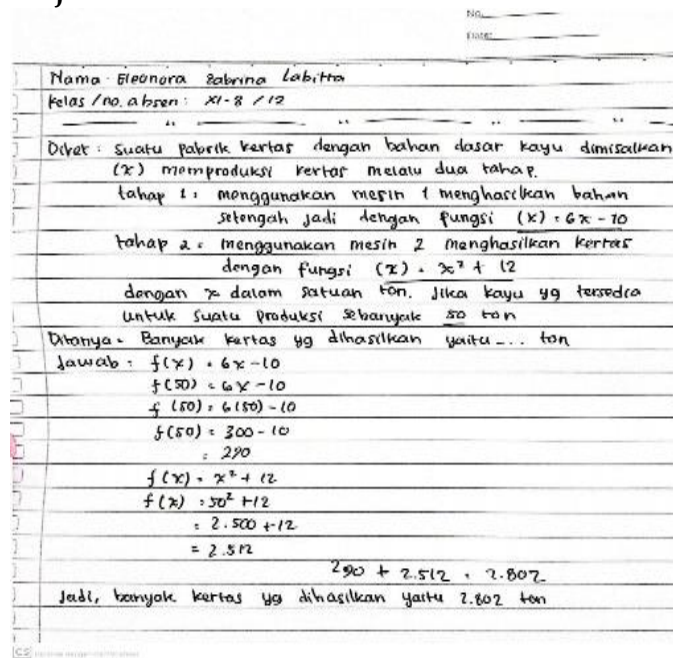 No.
Date:
Nama : Eleonora Sabrina Labitta
Kelas / no. absen : XI-8 / 12
Diket : Suatu pabrik kertas dengan bahan dasar kayu dimisalkan
(x) memproduksi kertas melalu dua tahap.
tahap 1 : menggunakan mesin 1 menghasilkan bahan
setengah jadi dengan fungsi (x) = 6x - 10
tahap 2 : menggunakan mesin 2 menghasilkan kertas
dengan fungsi (x) = x² + 12
dengan x dalam satuan ton. Jika kayu yg tersedia
untuk suatu produksi sebanyak 50 ton
Ditanya : Banyak kertas yg dihasilkan yaitu ... ton
Jawab : f(x) = 6x - 10
f(50) = 6x - 10
f(50) = 6(50) - 10
f(50) = 300 - 10
= 290
f(x) = x² + 12
f(x) = 50² + 12
= 2.500 + 12
= 2.512
290 + 2.512 = 2.802
Jadi, banyak kertas yg dihasilkan yaitu 2.802 ton
CS